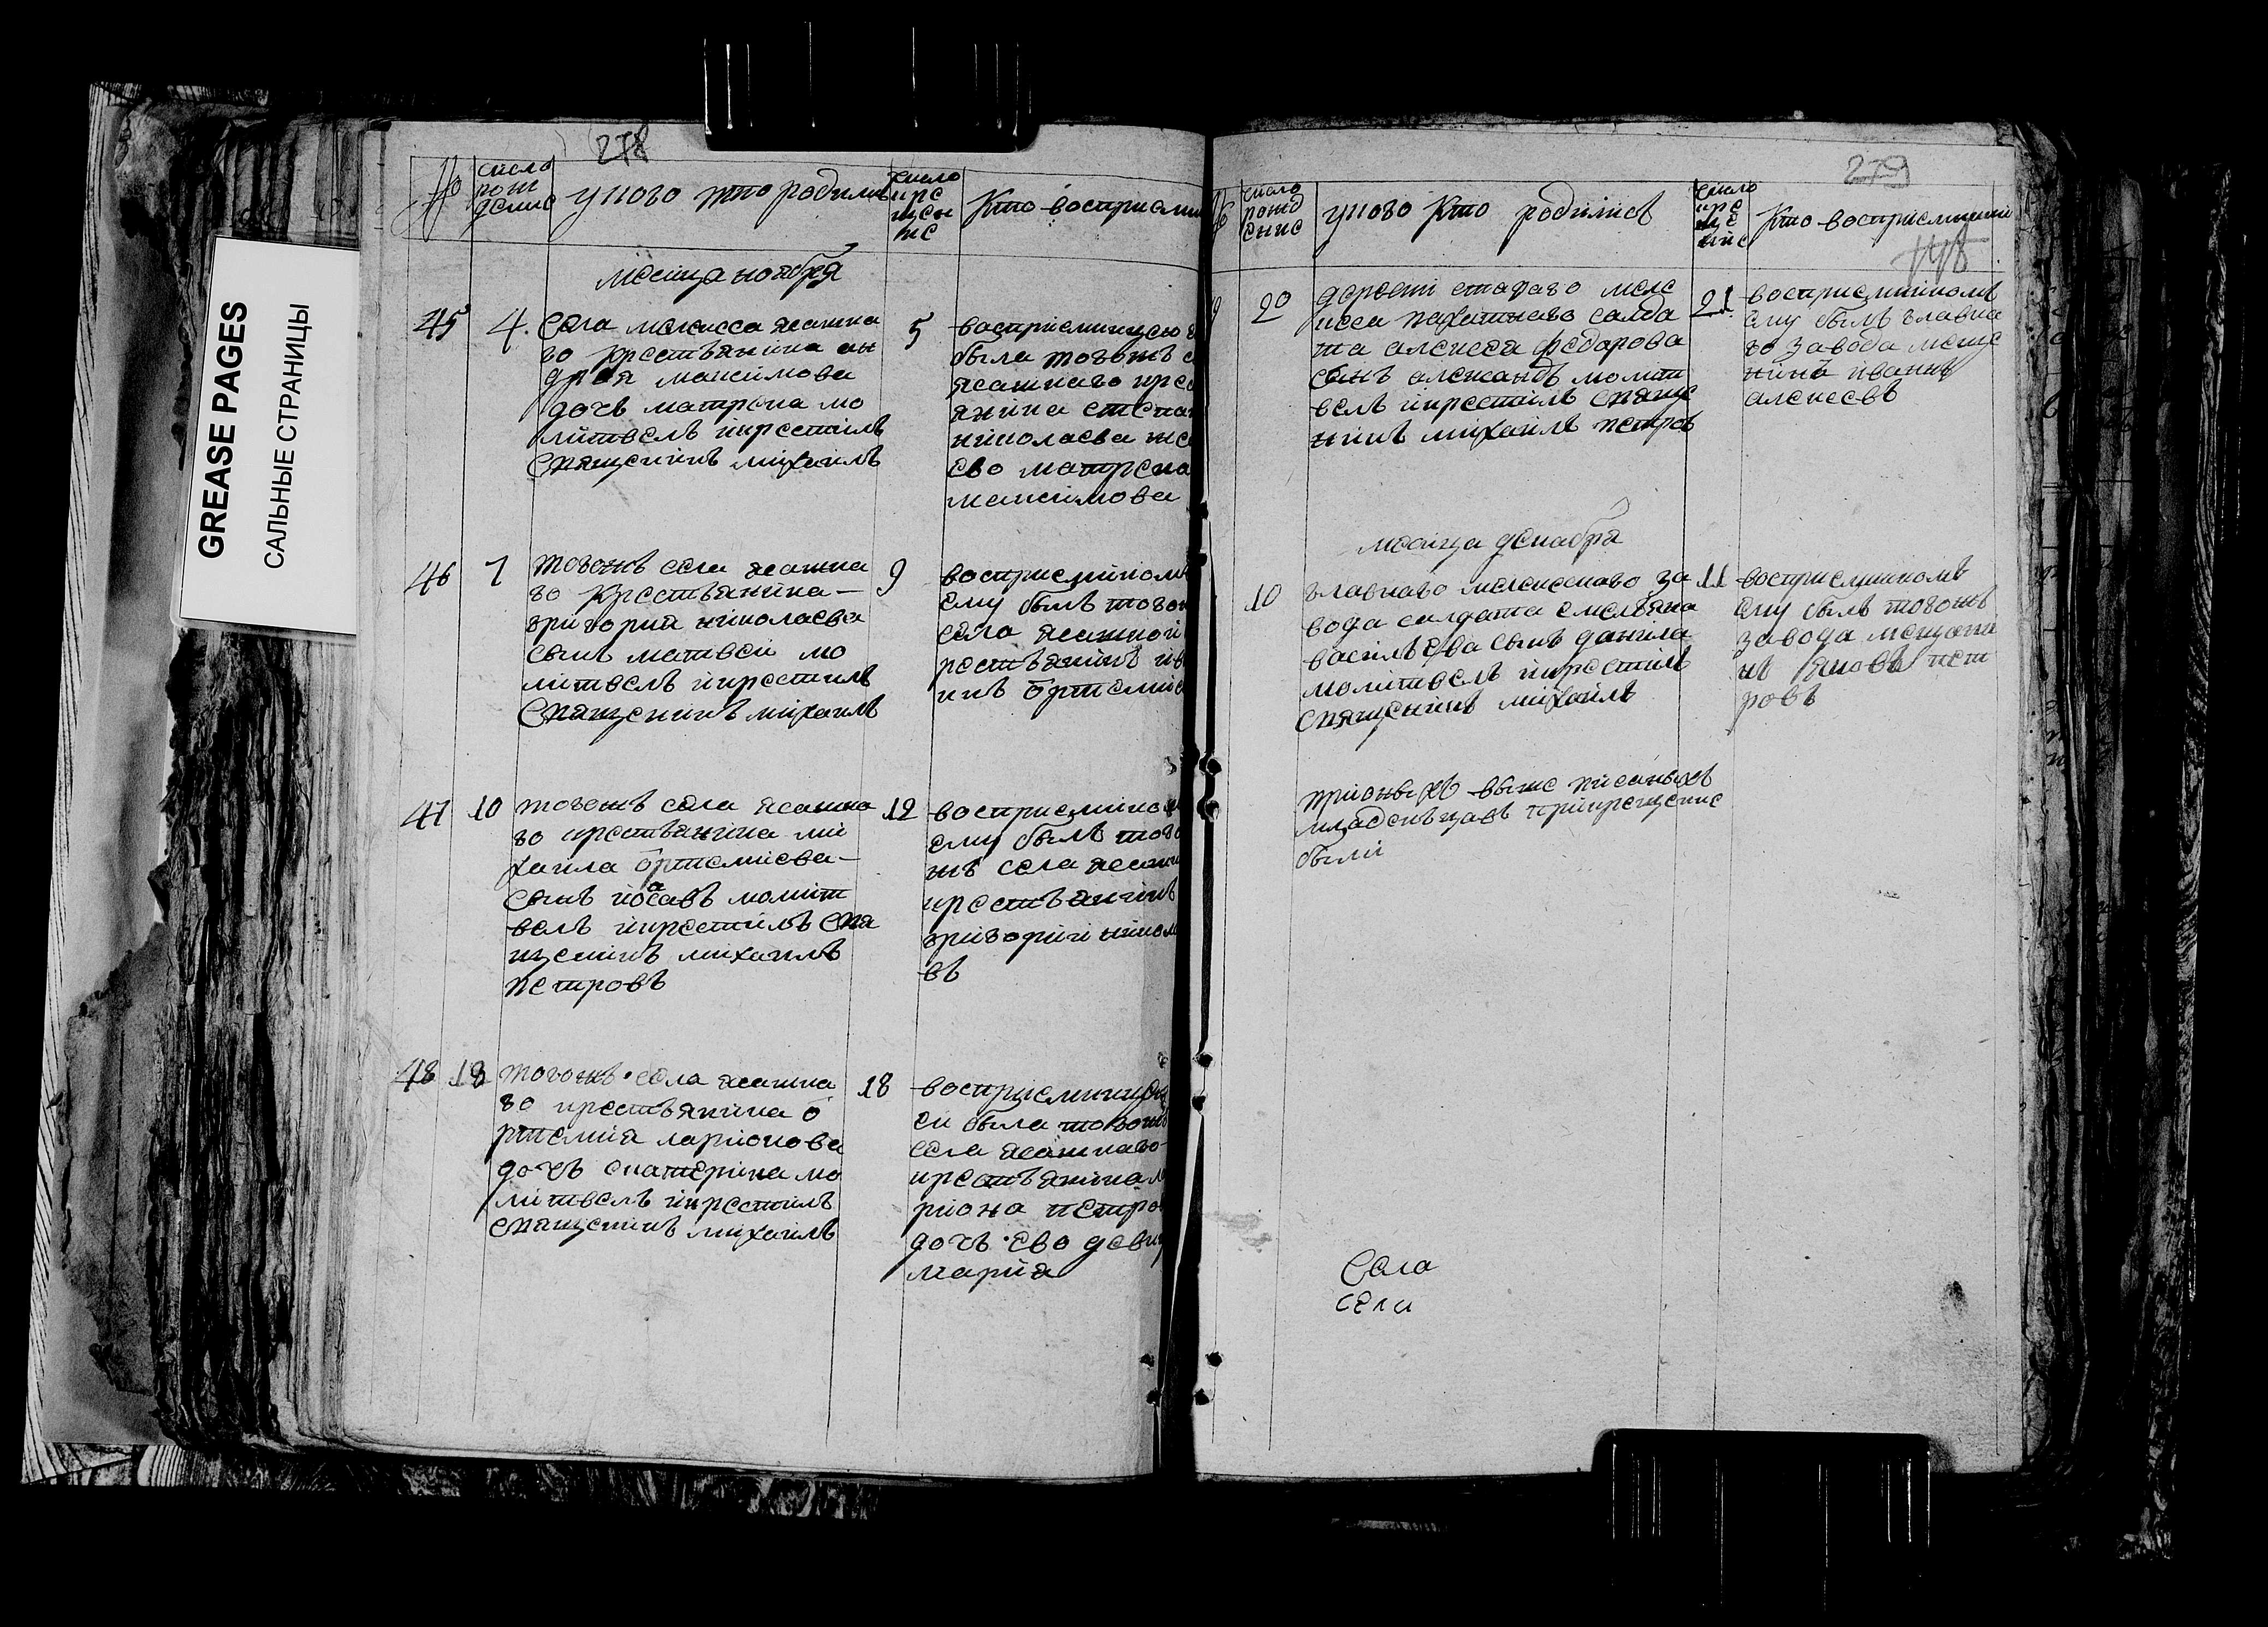 GREASE PAGES
САЛЬНЫЕ СТРАНИЦЫ
278
№
число
рож
дение
у ково кто родилис
число
кре
щен
ие
Кто восприемни
месяца ноября
45
4.
села мелекеса ясашна
го крестьянина ан
дрея максимова
дочь матрена мо
литвелъ и крестилъ
священникъ михаилъ
5
восприемницею
была тогожъ
ясашнаго кре
янина степа
николаева же
ево матрена
максимова
46
7
тогожъ села ясашна
го крестьянина
григория николаева
сынъ матвеи мо
литвелъ и крестилъ
священникъ михаилъ
9
восприемником
ему былъ тогож
села ясашной
рестьянинъ ив
нъ ортемие
47
10
тогожъ села ясашна
го крестьянина ми
хаила ортемиева
сынъ иосавъ молит
велъ и крестилъ свя
щеникъ михаилъ
петровъ
12
восприемником
ему былъ того
жъ села ясашн
крестьянинъ
григорий никол
въ
48
18
тогожъ села ясашна
го крестьянина о
ртемия ларионова
дочь екатерина мо
литвелъ и крестилъ
священикъ михаилъ
18
восприемницею
еи была тогожъ
села ясашнаго
крестьянина ла
риона петро
дочь ево деви
мария
279
число
рожд
ение
у ково кто родилисъ
число
кре
ще
ние
Кто восприемники
9
20
деревни стараго меле
кеса пахатнаго салда
та алексея федарова
сынъ александъ молит
велъ и крестилъ свяще
никъ михаилъ петровъ
21
восприемникомъ
ему былъ главна
го завода меще
нинъ иванъ
алексеевъ
месяца декабря
10
главнаго мелекескаго за
вода салдата емельяна
васильева сынъ данила
молитвелъ и крестилъ
священикъ михаилъ
11
восприемникомъ
ему былъ тогожъ
завода мещани
нъ яковъ пет
ровъ
при оныхъ выше писаныхъ
младенъцавъ при крещение
были
Села
села